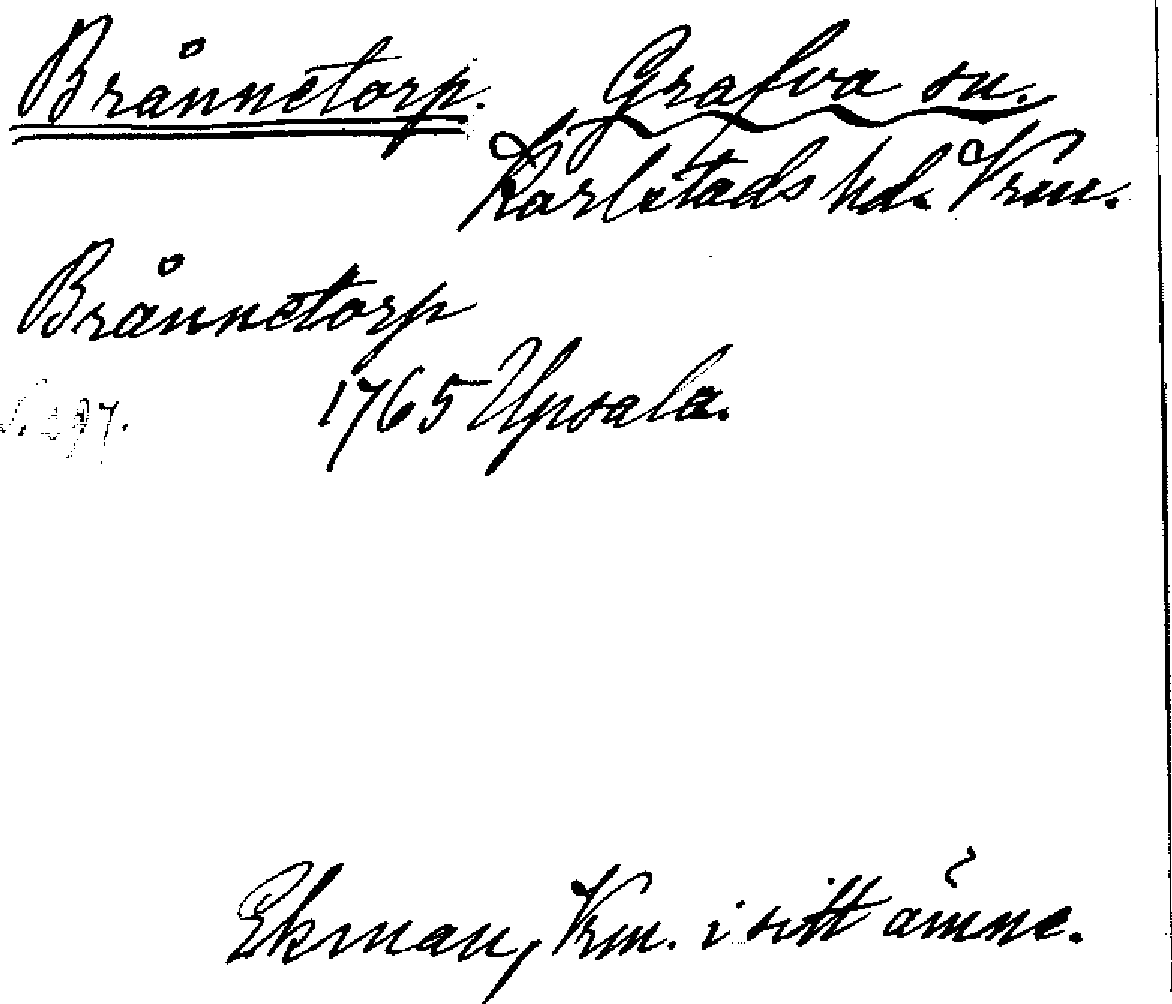 Brånnetorp. Grafva sn.
Karlstads hd. Vrm.
Brånnetorp
1765 Upsala.
Ekman, Vrm. i sitt ämne.